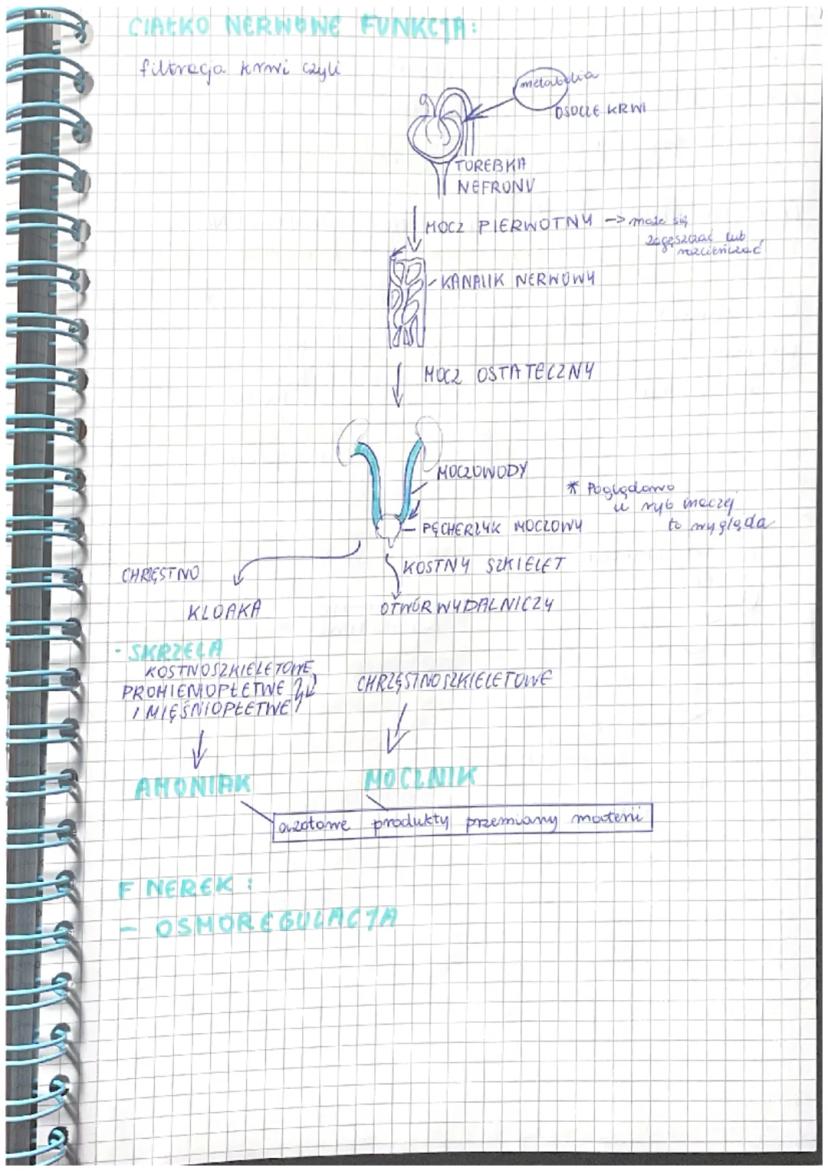 CIAŁKO NERWOWE FUNKCJA:
filtracja krwi czyli
metabolia
OSOCZE KRWI
TOREBKA
NEFRONU
MOCZ PIERWOTNY -> może się
zagęszczać lub
rozcieńczać
KANALIK NERWOWY
MOCZ OSTATECZNY
MOCZOWODY
* Poglądowo
u ryb inaczej
to wygląda
PĘCHERZYK MOCZOWY
CHRZĘSTNO
KOSTNY SZKIELET
KLOAKA
OTWÓR WYDALNICZY
- SKRZELA
KOSTNOSZKIELETOWE
PROMIENIOPŁETWE
I MIĘŚNIOPŁETWE
CHRZĘSTNOSZKIELETOWE
AMONIAK
MOCZNIK
azotowe produkty przemiany materii
F NEREK:
- OSMOREGULACJA